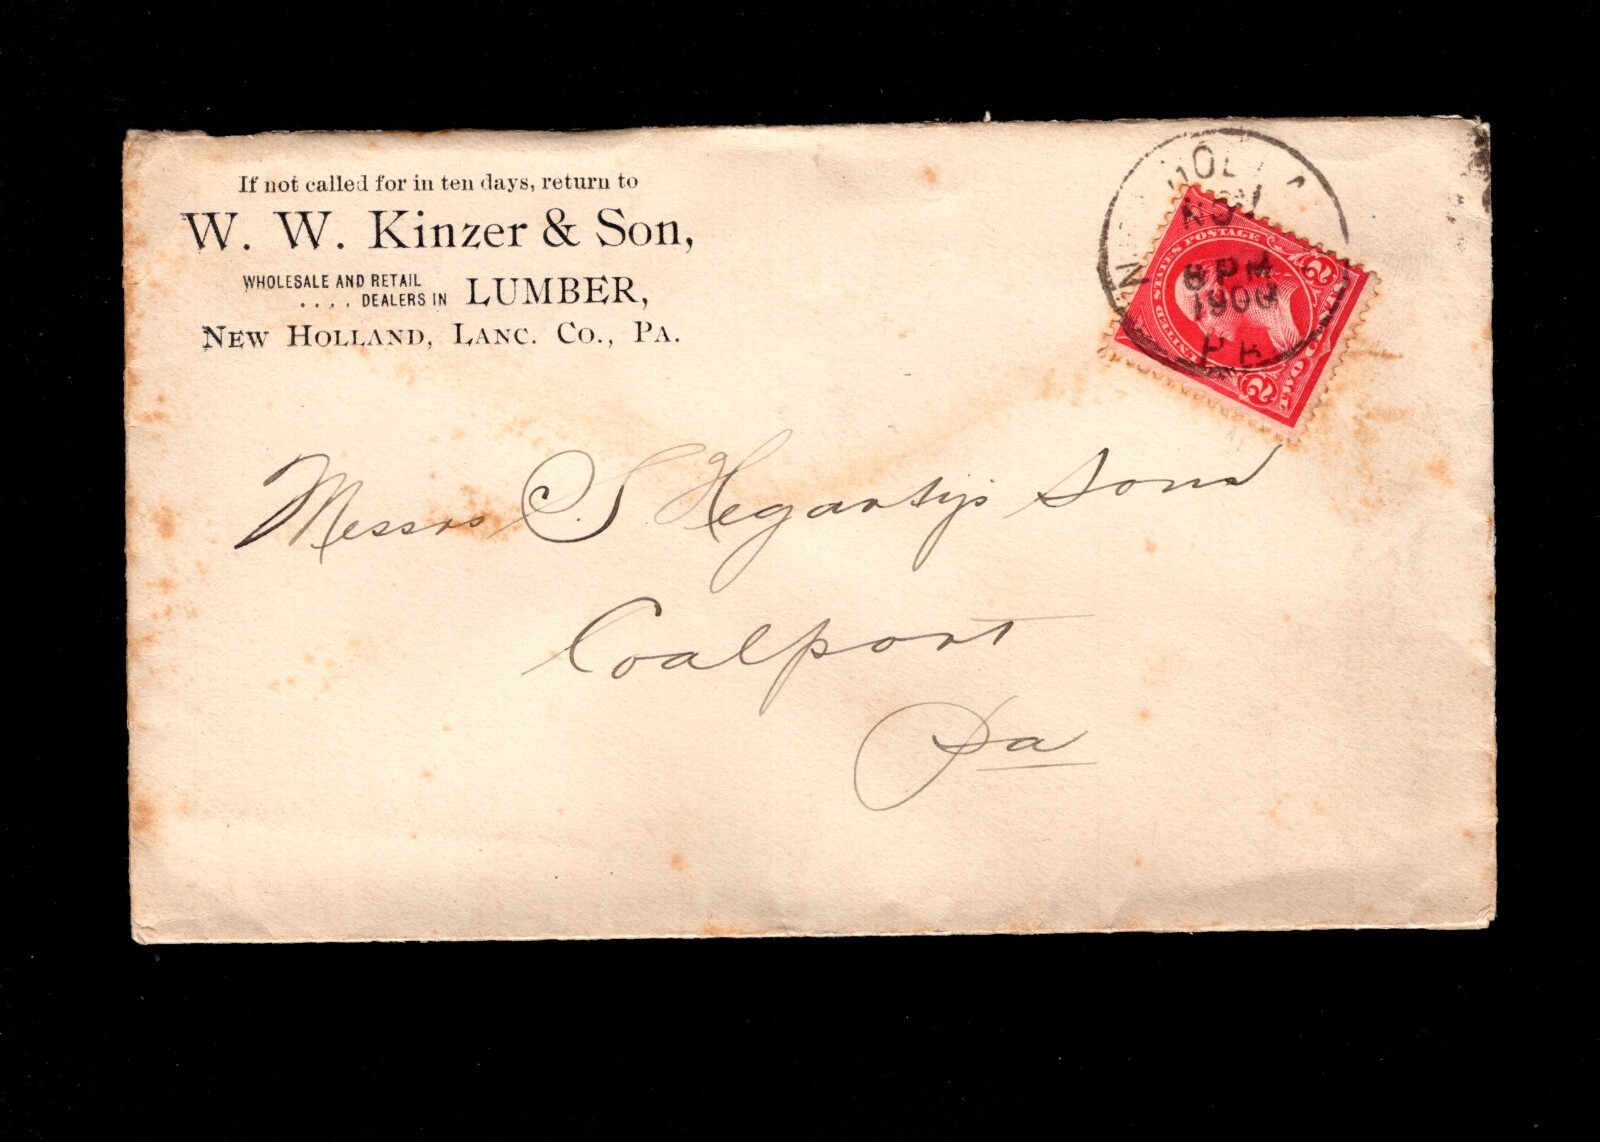 If not called for in ten days, return to
W. W. Kinzer & Son,
WHOLESALE AND RETAIL
.... DEALERS IN LUMBER,
NEW HOLLAND, LANC. CO., PA.
NOV
8 PM
1900
PA
UNITED STATES POSTAGE
2 TWO 2
Messrs S Hegarty's Sons
Coalport
Pa